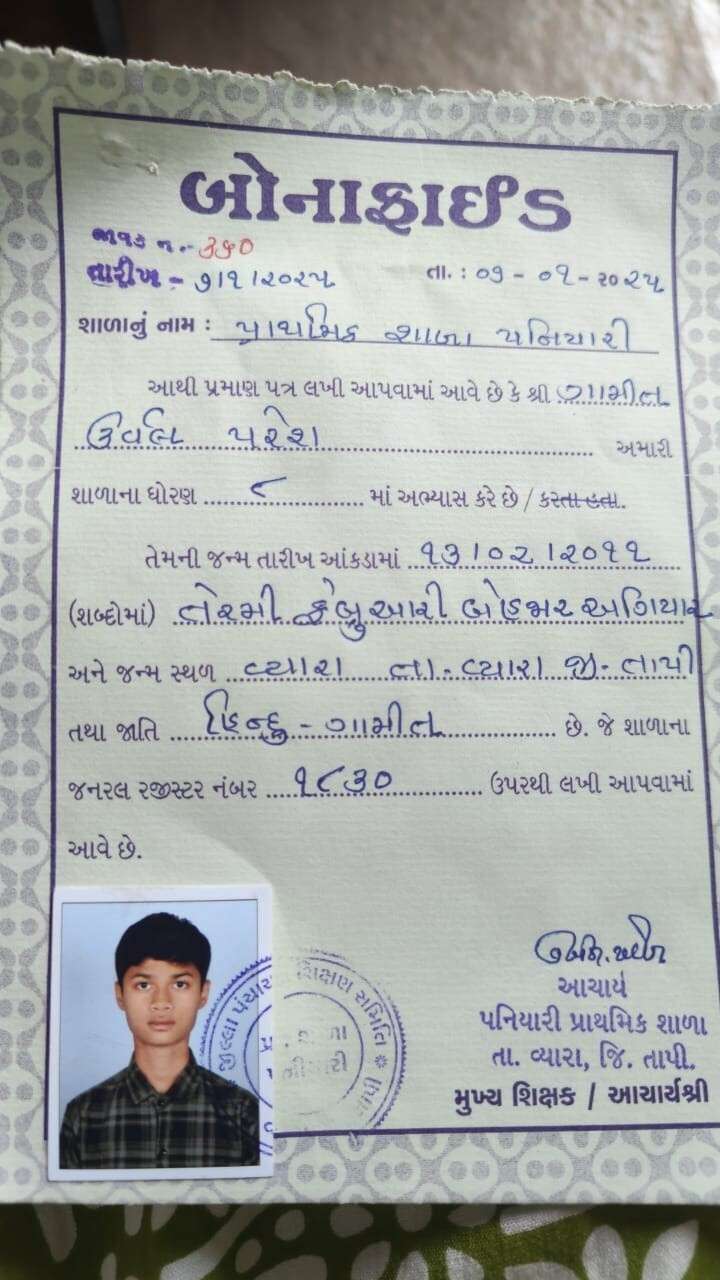 બોનાફાઈડ
જાવક નં.- ૩૬૦
તારીખ - ૭/૧/૨૦૨૫ તા. : ૦૭ - ૦૧ - ૨૦૨૫
શાળાનું નામ : પ્રાથમિક શાળા પનિયારી
આથી પ્રમાણ પત્ર લખી આપવામાં આવે છે કે શ્રી ગામીત
ઉર્વલ પરેશ અમારી
શાળાના ધોરણ ૮ માં અભ્યાસ કરે છે / કરતા હતા.
તેમની જન્મ તારીખ આંકડામાં ૧૩/૦૨/૨૦૧૧
(શબ્દોમાં) તેરમી ફેબ્રુઆરી બેહજાર અગિયાર
અને જન્મ સ્થળ વ્યારા તા- વ્યારા જી- તાપી
તથા જાતિ હિન્દુ - ગામીત છે. જે શાળાના
જનરલ રજીસ્ટર નંબર ૧૮૩૦ ઉપરથી લખી આપવામાં
આવે છે.
જીલ્લા પંચાયત શિક્ષણ સમિતિ
આચાર્ય
પનિયારી પ્રાથમિક શાળા
તા. વ્યારા, જિ. તાપી.
મુખ્ય શિક્ષક / આચાર્યશ્રી